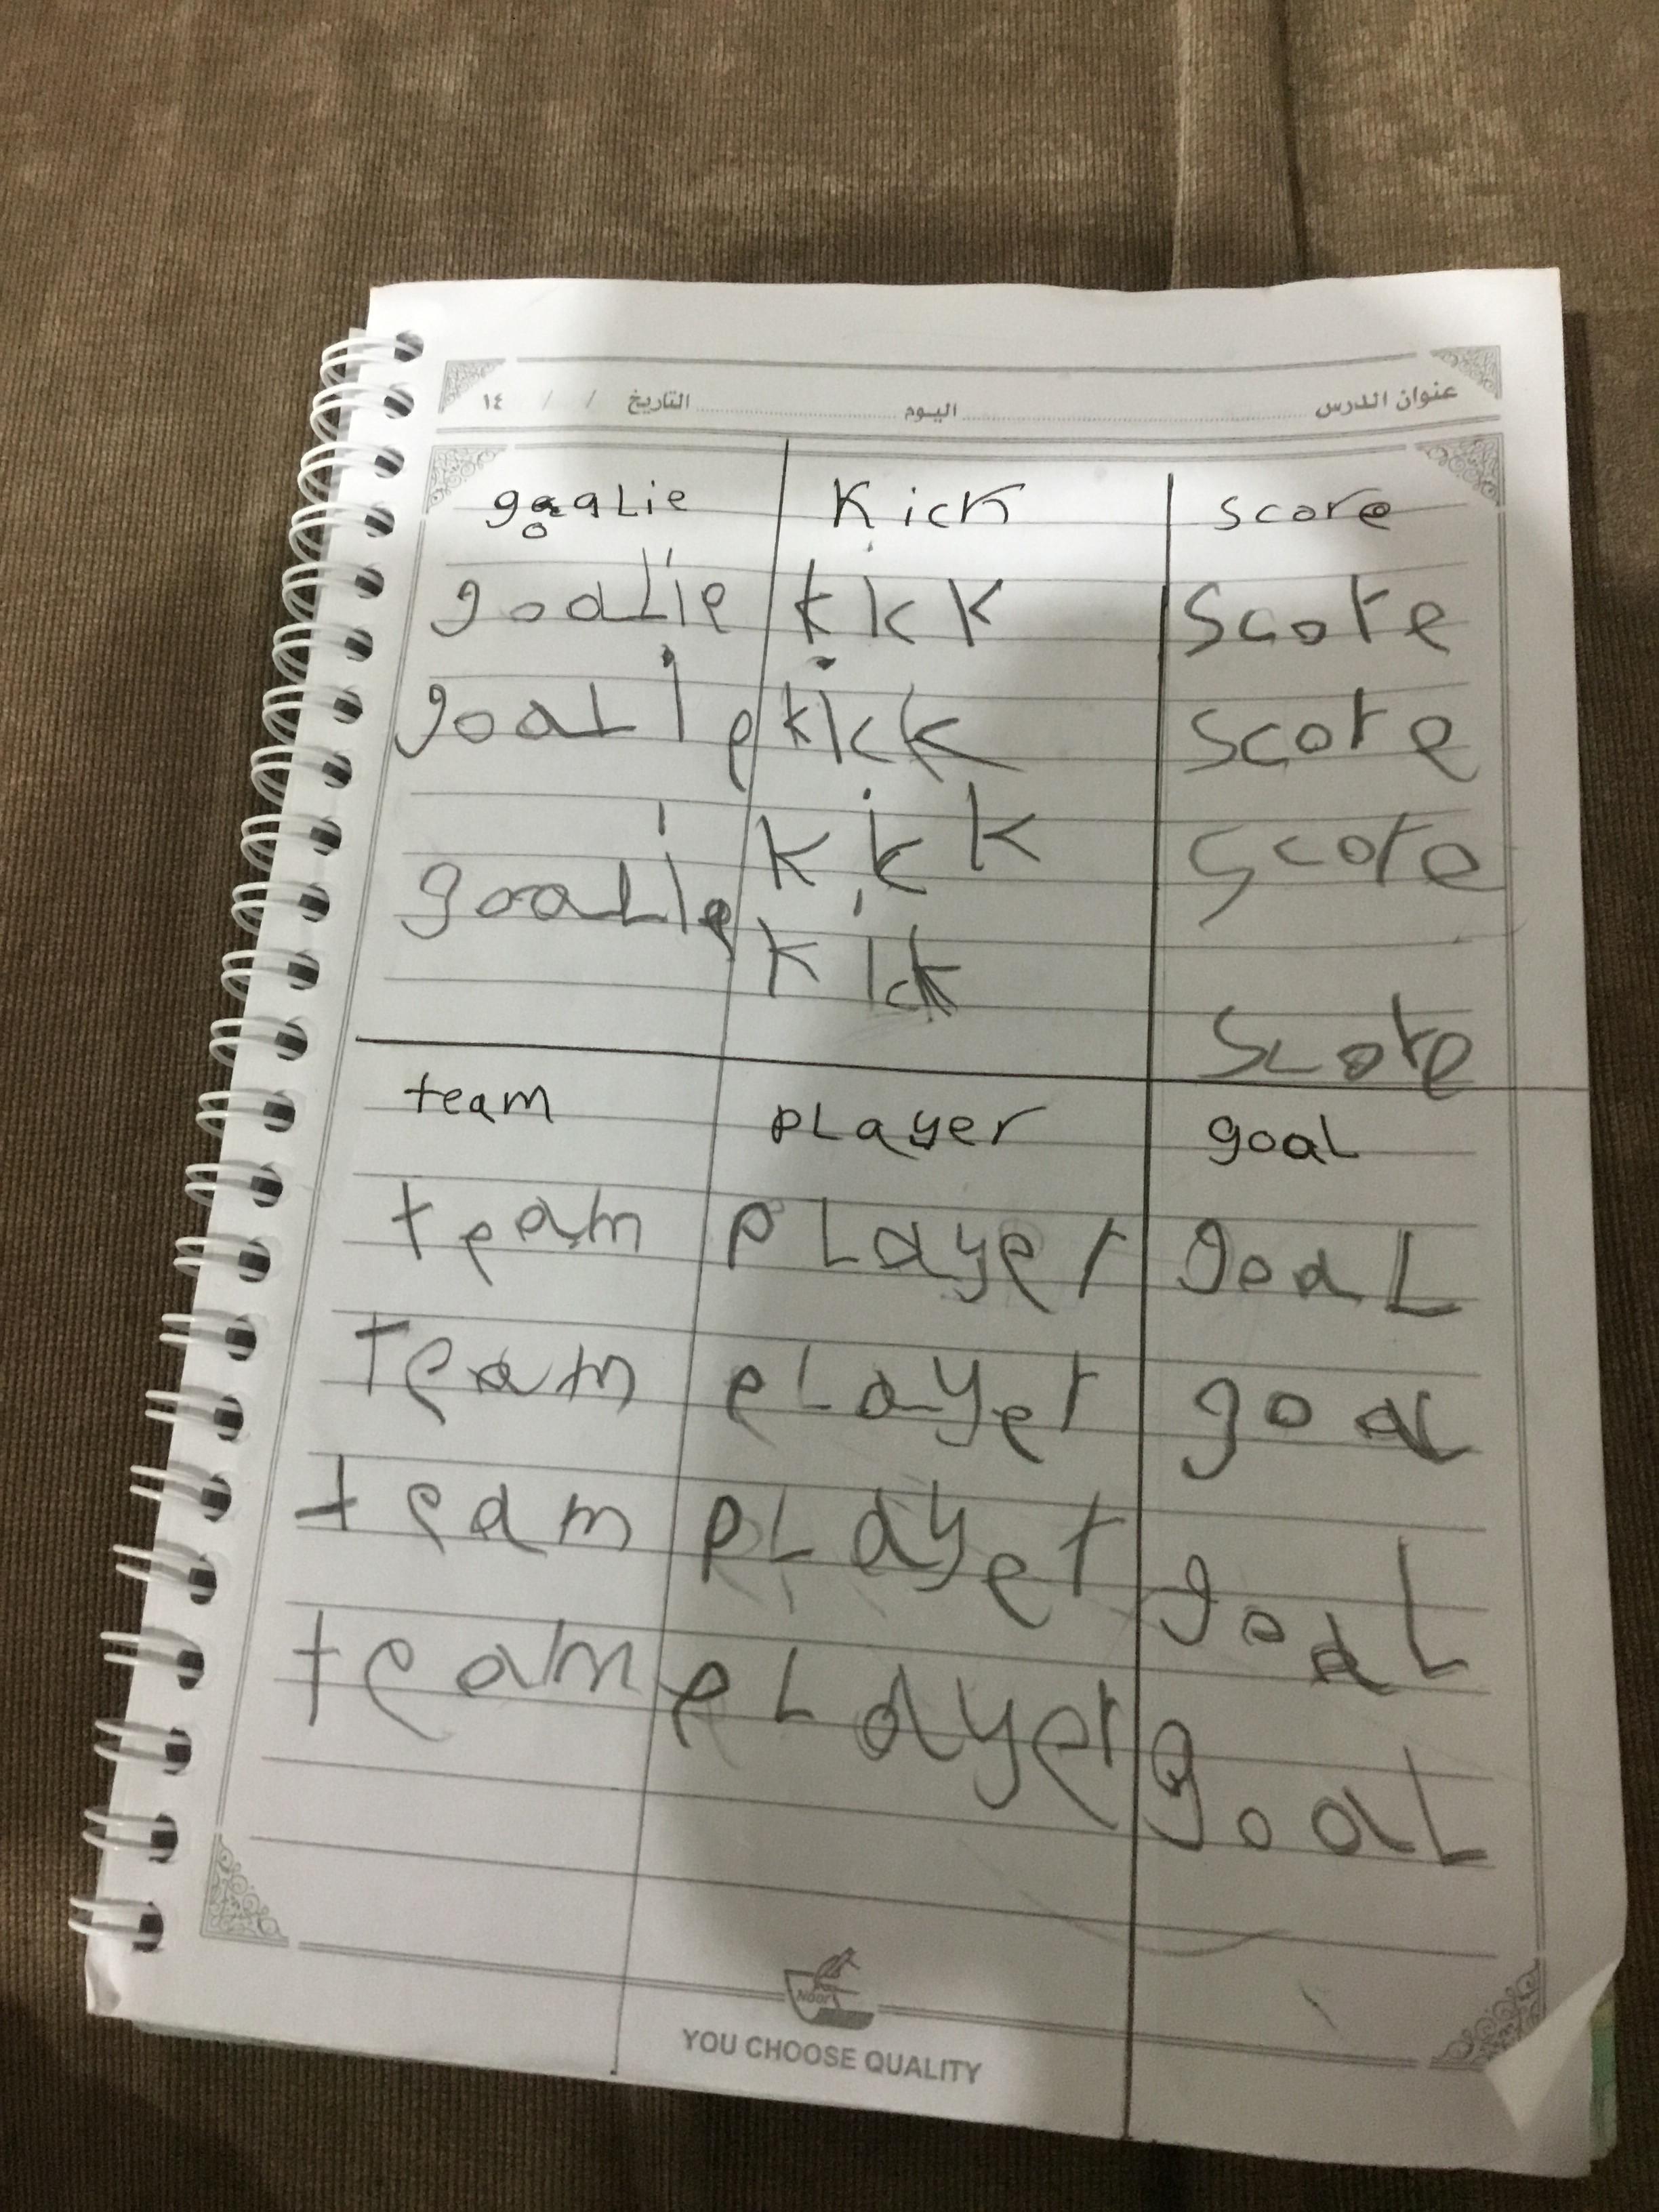 عنوان الدرس اليوم التاريخ / / ١٤
goalie Kick score
goaLie kick score
goaLie kick score
goaLie kick score
kick
score
team pLayer goal
team pLayer goaL
team pLayer goaL
team pLayer goaL
team pLayer goaL
Noor
YOU CHOOSE QUALITY